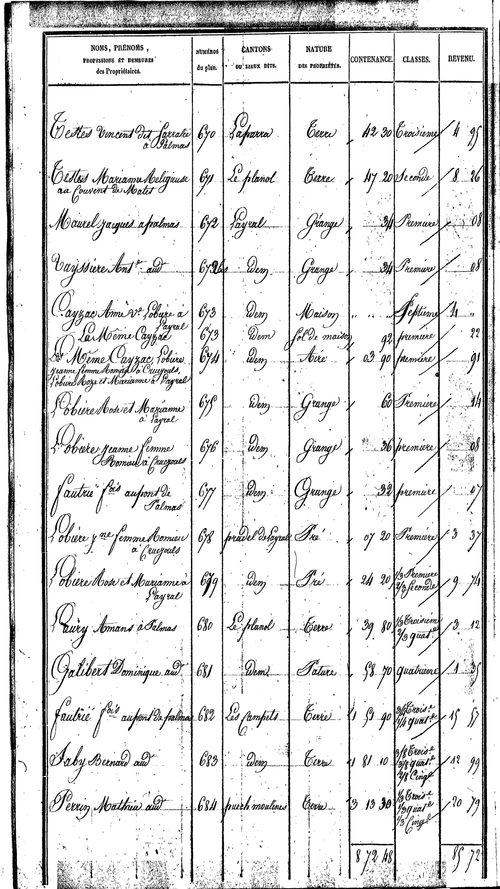 NOMS, PRÉNOMS, PROFESSIONS ET DEMEURES des Propriétaires. NUMÉROS du plan. CANTONS OU LIEUX DITS. NATURE DES PROPRIÉTÉS. CONTENANCE. CLASSES. REVENU.
Testes Vincent dit Larralie à Palmas 670 Laparra Terre 42 30 Troisieme 4 95
Testes Marianne Religieuse au Couvent de 671 Le planol Terre 47 20 Seconde 8 26
Maurel Jacques a palmas 672 Layral Grange 34 Premiere 08
Vayssiere Ant.e aud 672 bis idem Grange 34 Premiere 08
Cayzac V.e Lobiere à Layral 673 idem Maison Septieme 4
La Même Cayzac 673 idem Sol de maison 92 premiere 22
La Même Cayzac Lobiere 674 idem Aire 03 90 premiere 91
Jeanne femme Romieu à Cruejouls,
Lobiere Roze et Marianne à Layral
Lobiere Rose et Marianne à Layral 675 idem Grange 60 Premiere 14
Lobiere Jeanne femme Romieu à Cruejouls 676 idem Grange 36 premiere 08
Fautrié f.ois au pont de Palmas 677 idem Grange 32 premiere 07
Lobiere J.ne femme Romieu à Cruejouls 678 pradel de Layral Pré 07 20 Premiere 3 37
Lobiere Rose et Marianne à Layral 679 idem Pré 24 20 1/3 Premiere 2/3 Seconde 9 74
Amans à Palmas 680 Le planol Terre 39 80 Troisieme quat.e 3 12
Galibert Dominique aud 681 idem Pature 58 70 quatrieme 1 35
Fautrié f.ois au pont de palmas 682 Les campets Terre 1 53 90 Trois.e quat.e 15 55
Bernard aud 683 idem Terre 1 81 10 3/8 Trois.e 3/8 quat.e 2/8 Cinq.e 12 99
Perrin Mathieu aud 684 puech moulines Terre 3 13 30 1/3 Trois.e 1/3 quat.e 1/3 Cinq.e 20 79
8 72 48 85 72